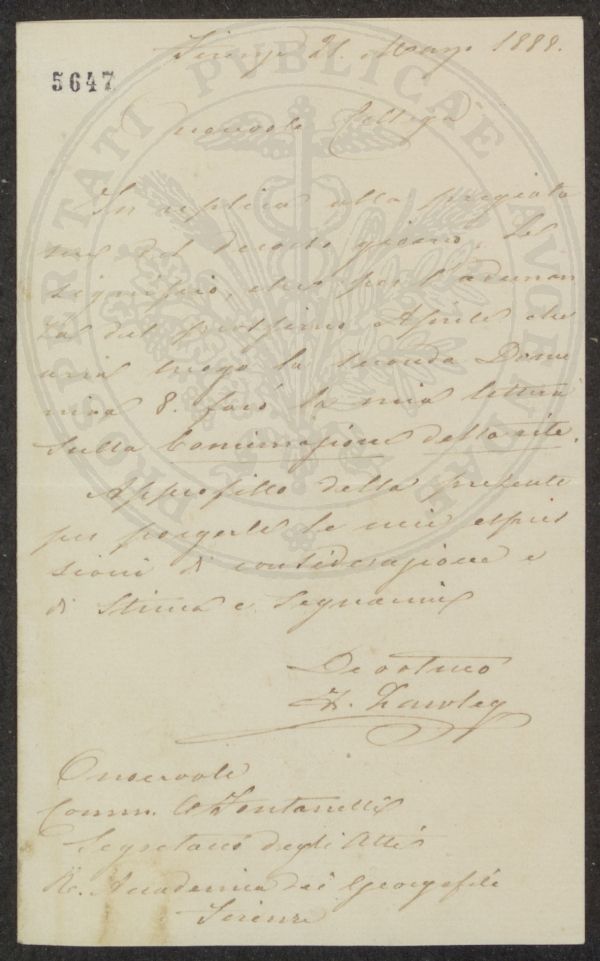 Firenze 21. Marzo 1888.
5647
Onorevole Collega
In replica alla pregiata
sua del decorso giorno, Le
significo, che per l'adunan
za del prossimo Aprile che
avrà luogo la seconda Dome
nica 8. farò la mia lettura
sulla Concimazione della vite.
Approfitto della presente
per porgerle le mie espres
sioni di considerazione e
di stima e segnarmi
Devotmo
F. Lawley
Onorevole
Comm. C Fontanelli
Segretario degli Atti
Re. Accademia dei Georgofili
Firenze
PROSPERITATI PUBLICAE AUGENDAE